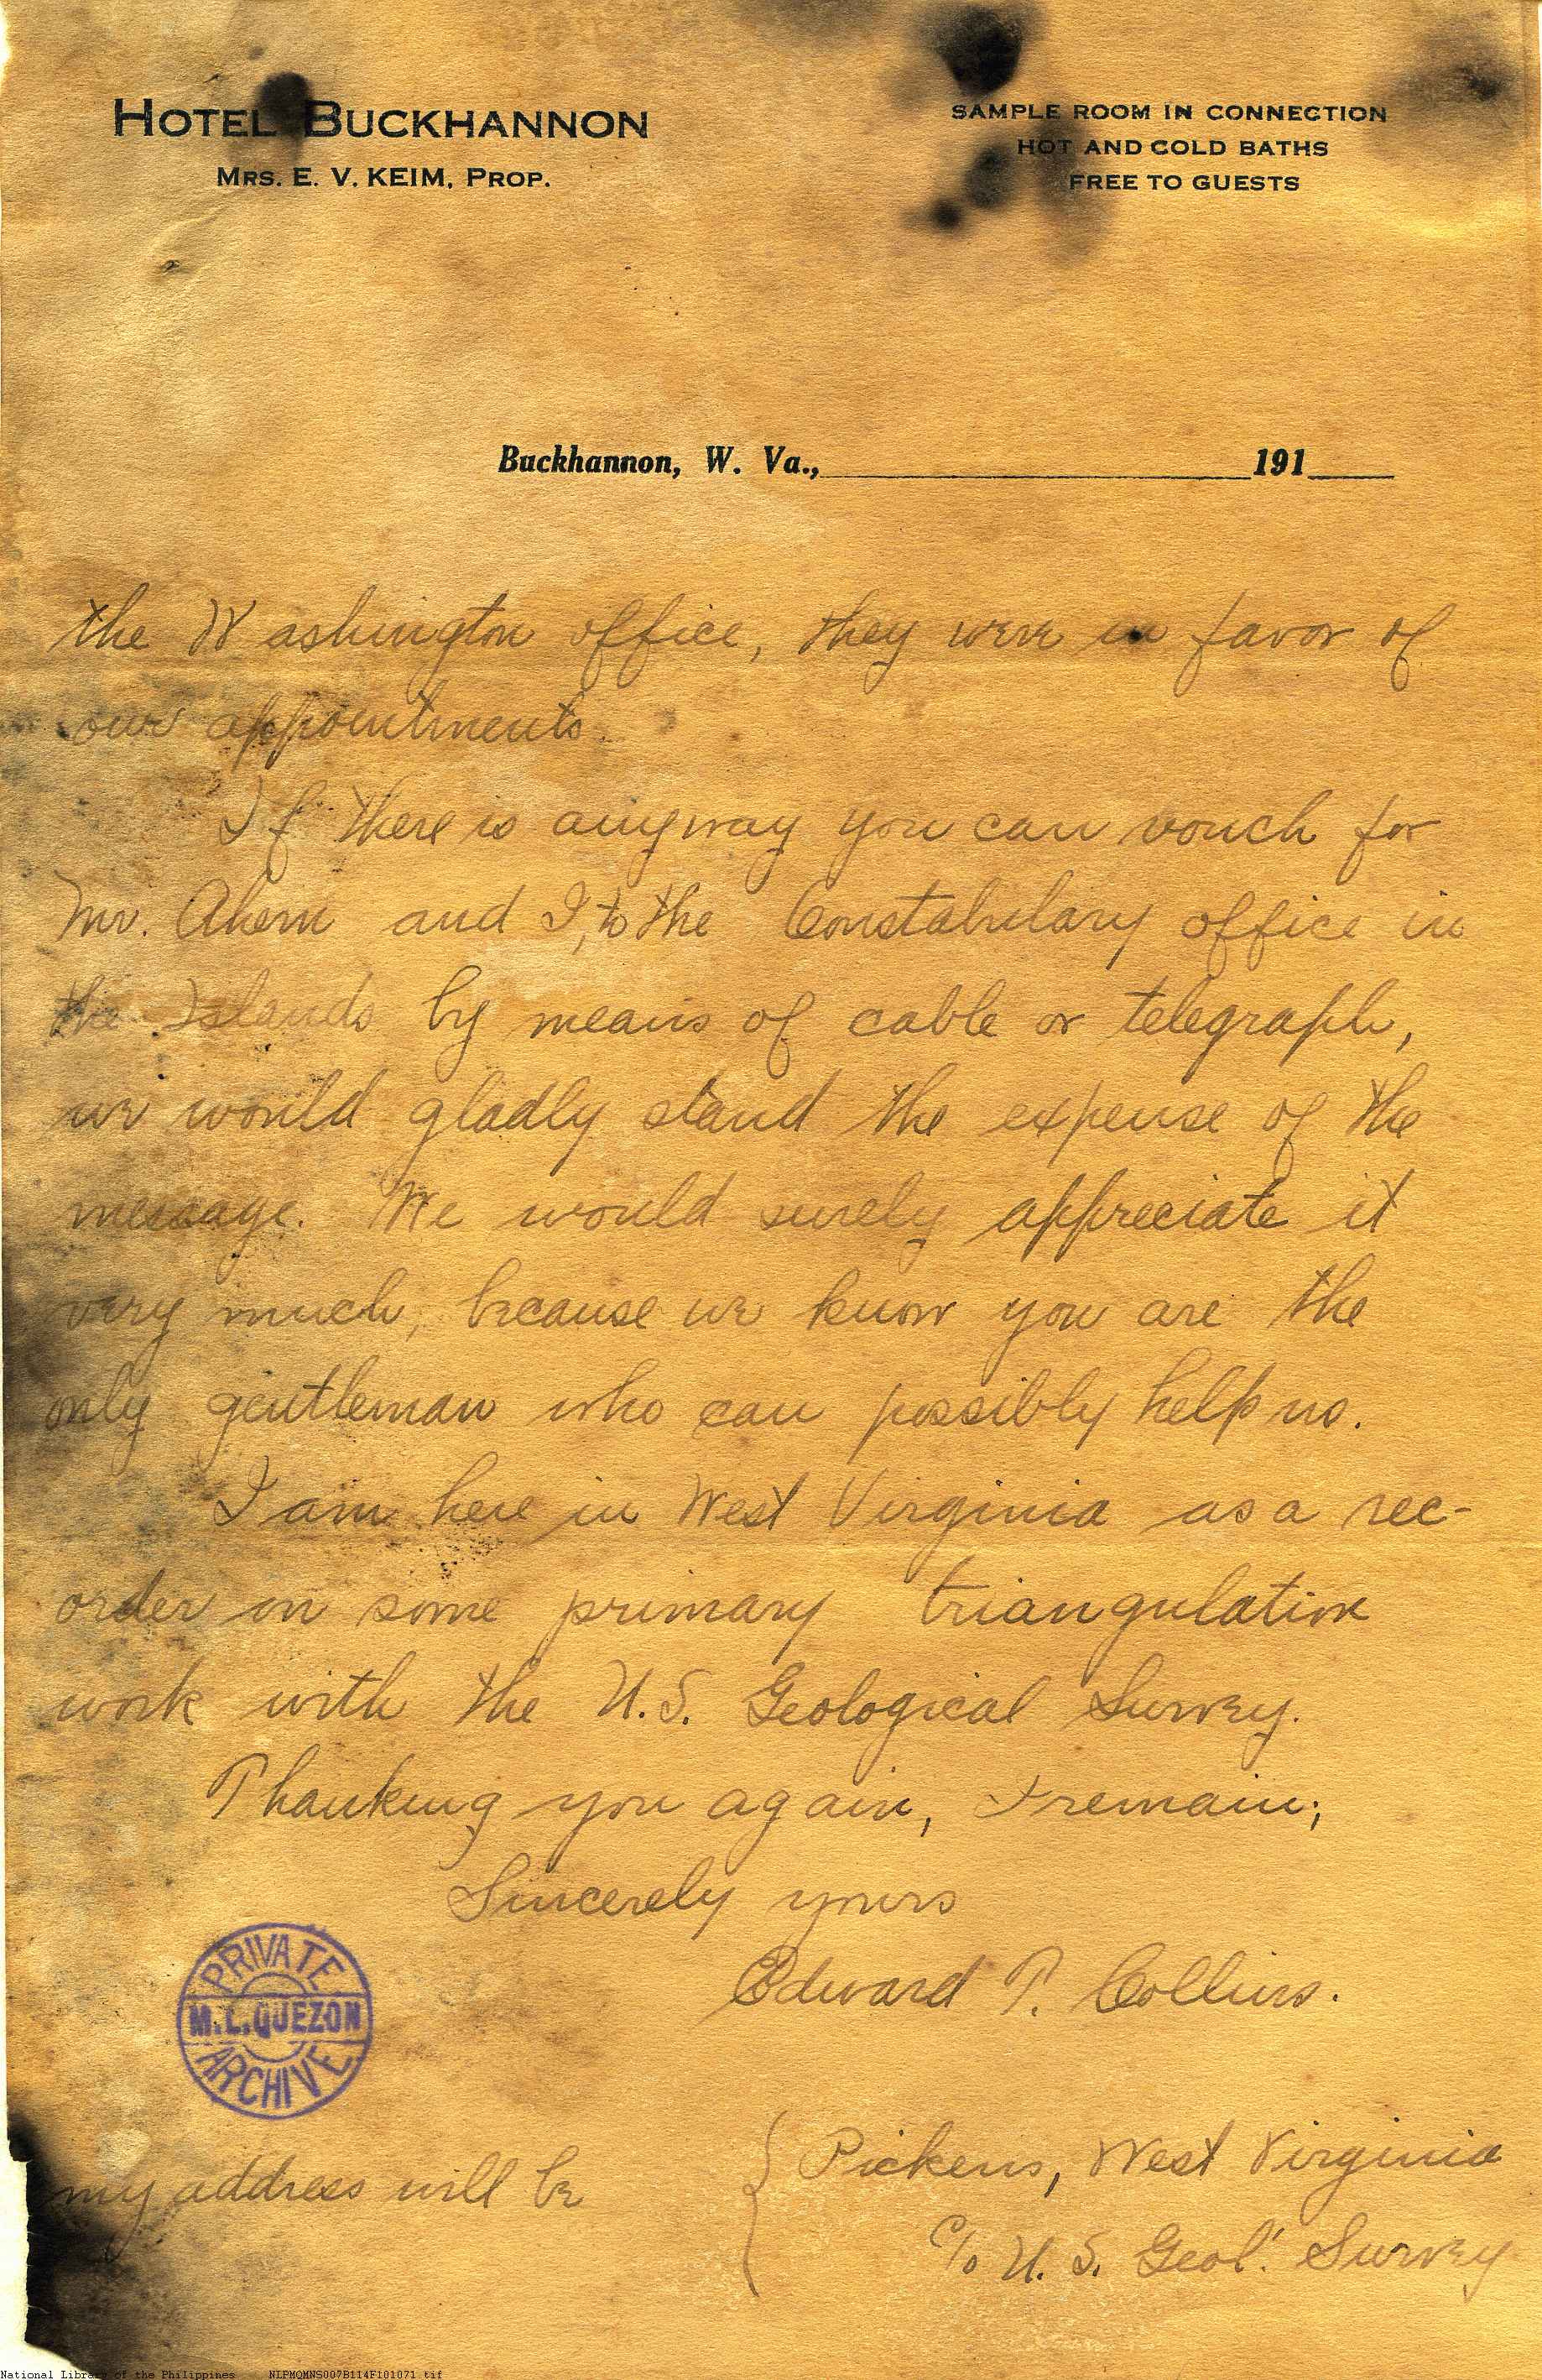 HOTEL BUCKHANNON
MRS. E. V. KEIM, PROP.
SAMPLE ROOM IN CONNECTION
HOT AND COLD BATHS
FREE TO GUESTS
Buckhannon, W. Va., 191
the Washington office, they were in favor of
our appointments.
If there is anyway you can vouch for
Mr. Ahern and I, to the Constabulary office in
the Islands by means of cable or telegraph,
we would gladly stand the expense of the
message. We would surely appreciate it
very much, because we know you are the
only gentleman who can possibly help us.
I am here in West Virginia as a rec-
order on some primary triangulation
work with the U.S. Geological Survey.
Thanking you again, I remain;
Sincerely yours
Edward P. Collins.
PRIVATE
M.L.QUEZON
ARCHIVE
my address will be { Pickens, West Virginia
c/o U. S. Geol'. Survey
National Library of the Philippines NLPMQMNS007B114F101071.tif